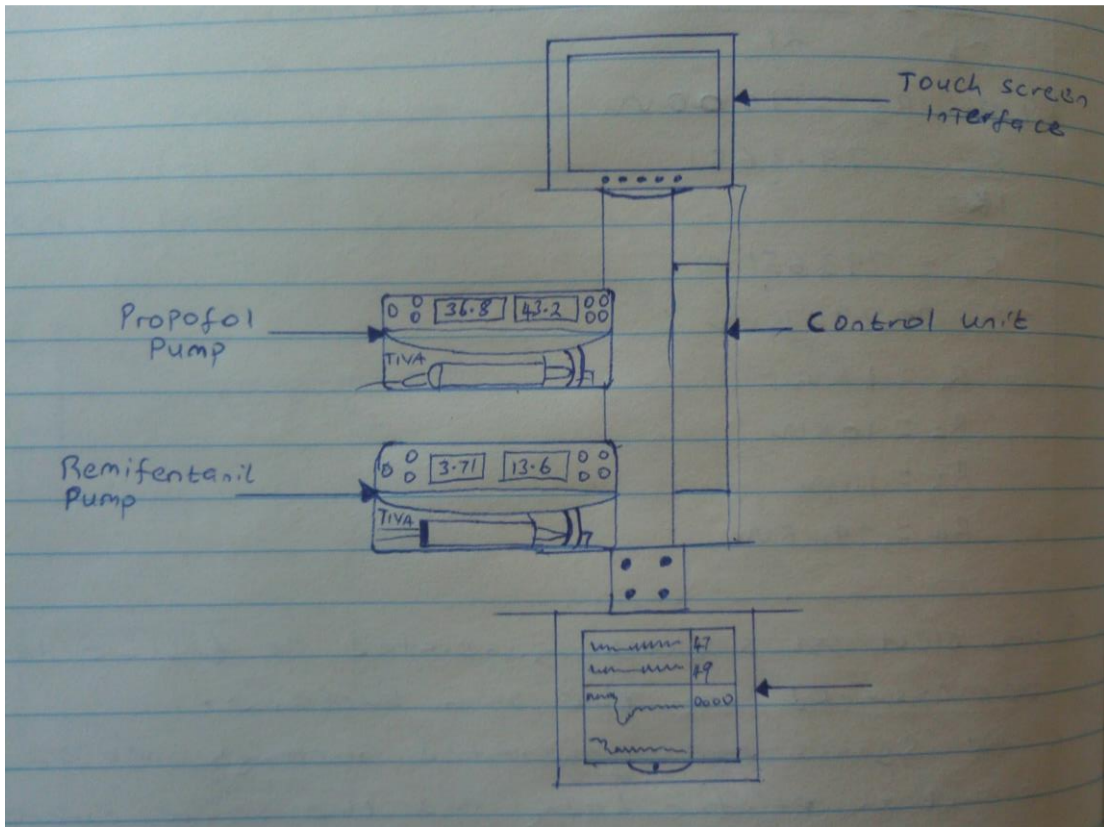 Touch screen
Interface
Propofol
Pump
36.8 43.2
TIVA
Control unit
Remifentanil
Pump
3.71 13.6
TIVA
47
49
0000